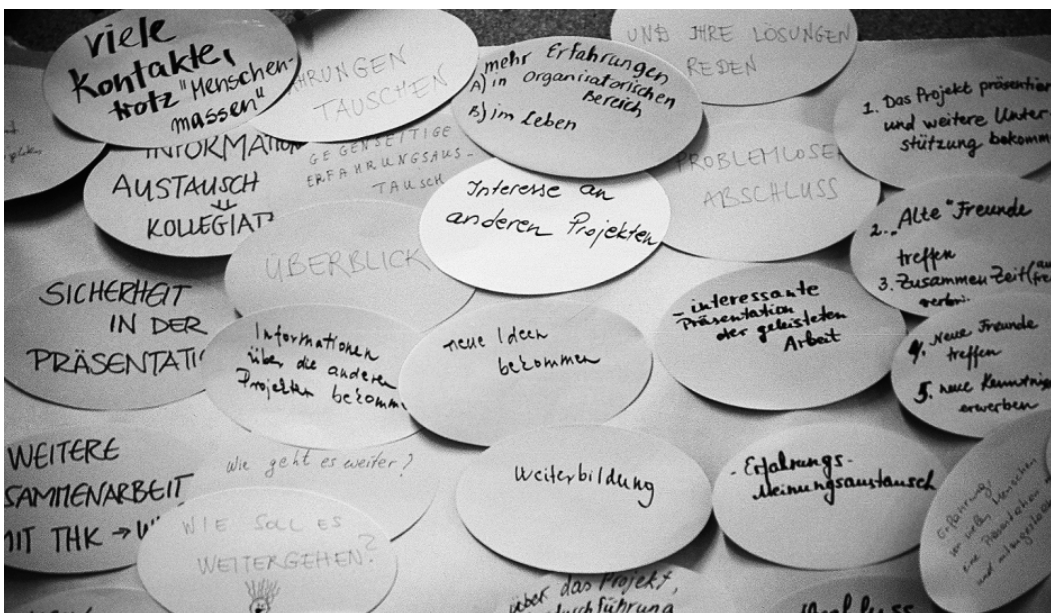 viele
Kontakte,
trotz "Menschen-
massen"
TAUSCHEN
mehr Erfahrungen
A) in organisatorischen
Bereich
B) im Leben
UND IHRE LÖSUNGEN
REDEN
1. Das Projekt
und weitere Unter-
stützung
AUSTAUSCH
KOLLEGIAT
GEGENSEITIGE
ERFAHRUNGSAUS-
TAUSCH
Interesse an
anderen Projekten
ABSCHLUSS
2. "Alte" Freunde
treffen
3. Zusammen Zeit
ÜBERBLICK
SICHERHEIT
IN DER
Informationen
über die anderen
Projekten
neue Ideen
bekommen
- interessante
Präsentation
der geleisteten
Arbeit
4. Neue Freunde
treffen
5. neue
erwerben
WEITERE
MIT THK →
Wie geht es weiter?
WIE SOLL ES
WEITERGEHEN?
Weiterbildung
- Erfahrungs-
Meinungsaustausch
Erfahrung,
vor vielen Menschen
eine Präsentation
und mitzugestalten
über das Projekt,